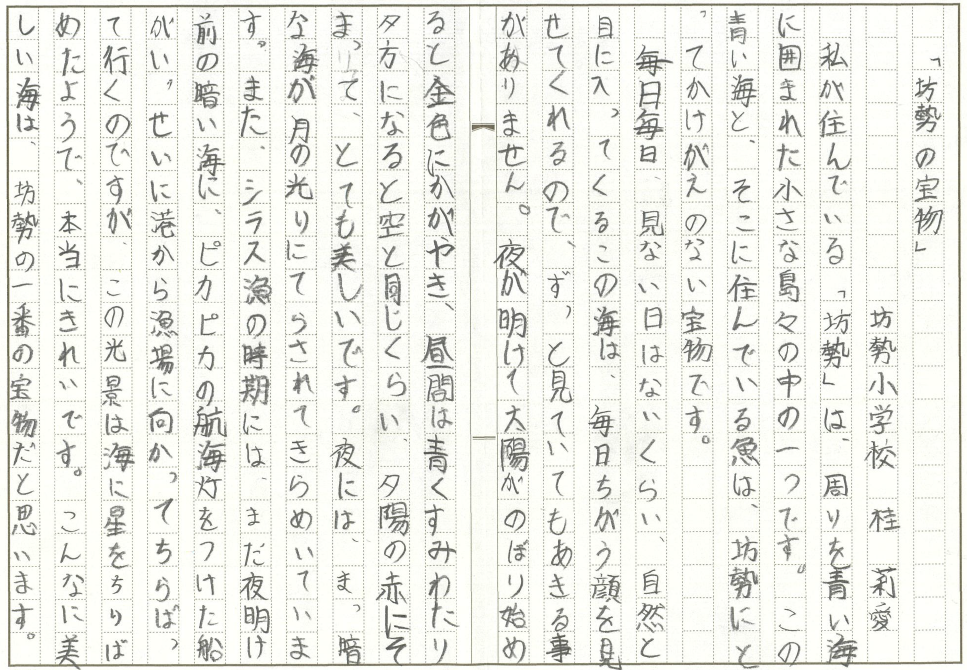 「坊勢の宝物」
坊勢小学校 桂 莉愛
私が住んでいる「坊勢」は、周りを青い海
に囲まれた小さな島々の中の一つです。この
青い海と、そこに住んでいる魚は、坊勢にと
ってかけがえのない宝物です。
毎日毎日、見ない日はないくらい、自然と
目に入ってくるこの海は、毎日ちがう顔を見
せてくれるので、ずっと見ていてもあきる事
がありません。夜が明けて太陽がのぼり始め
ると金色にかがやき、昼間は青くすみわたり
夕方になると空と同じくらい、夕陽の赤にそ
まって、とても美しいです。夜には、まっ暗
な海が月の光りにてらされてきらめいていま
す。また、シラス漁の時期には、まだ夜明け
前の暗い海に、ピカピカの航海灯をつけた船
がいっせいに港から漁場に向かってちらばっ
て行くのですが、この光景は海に星をちりば
めたようで、本当にきれいです。こんなに美
しい海は、坊勢の一番の宝物だと思います。